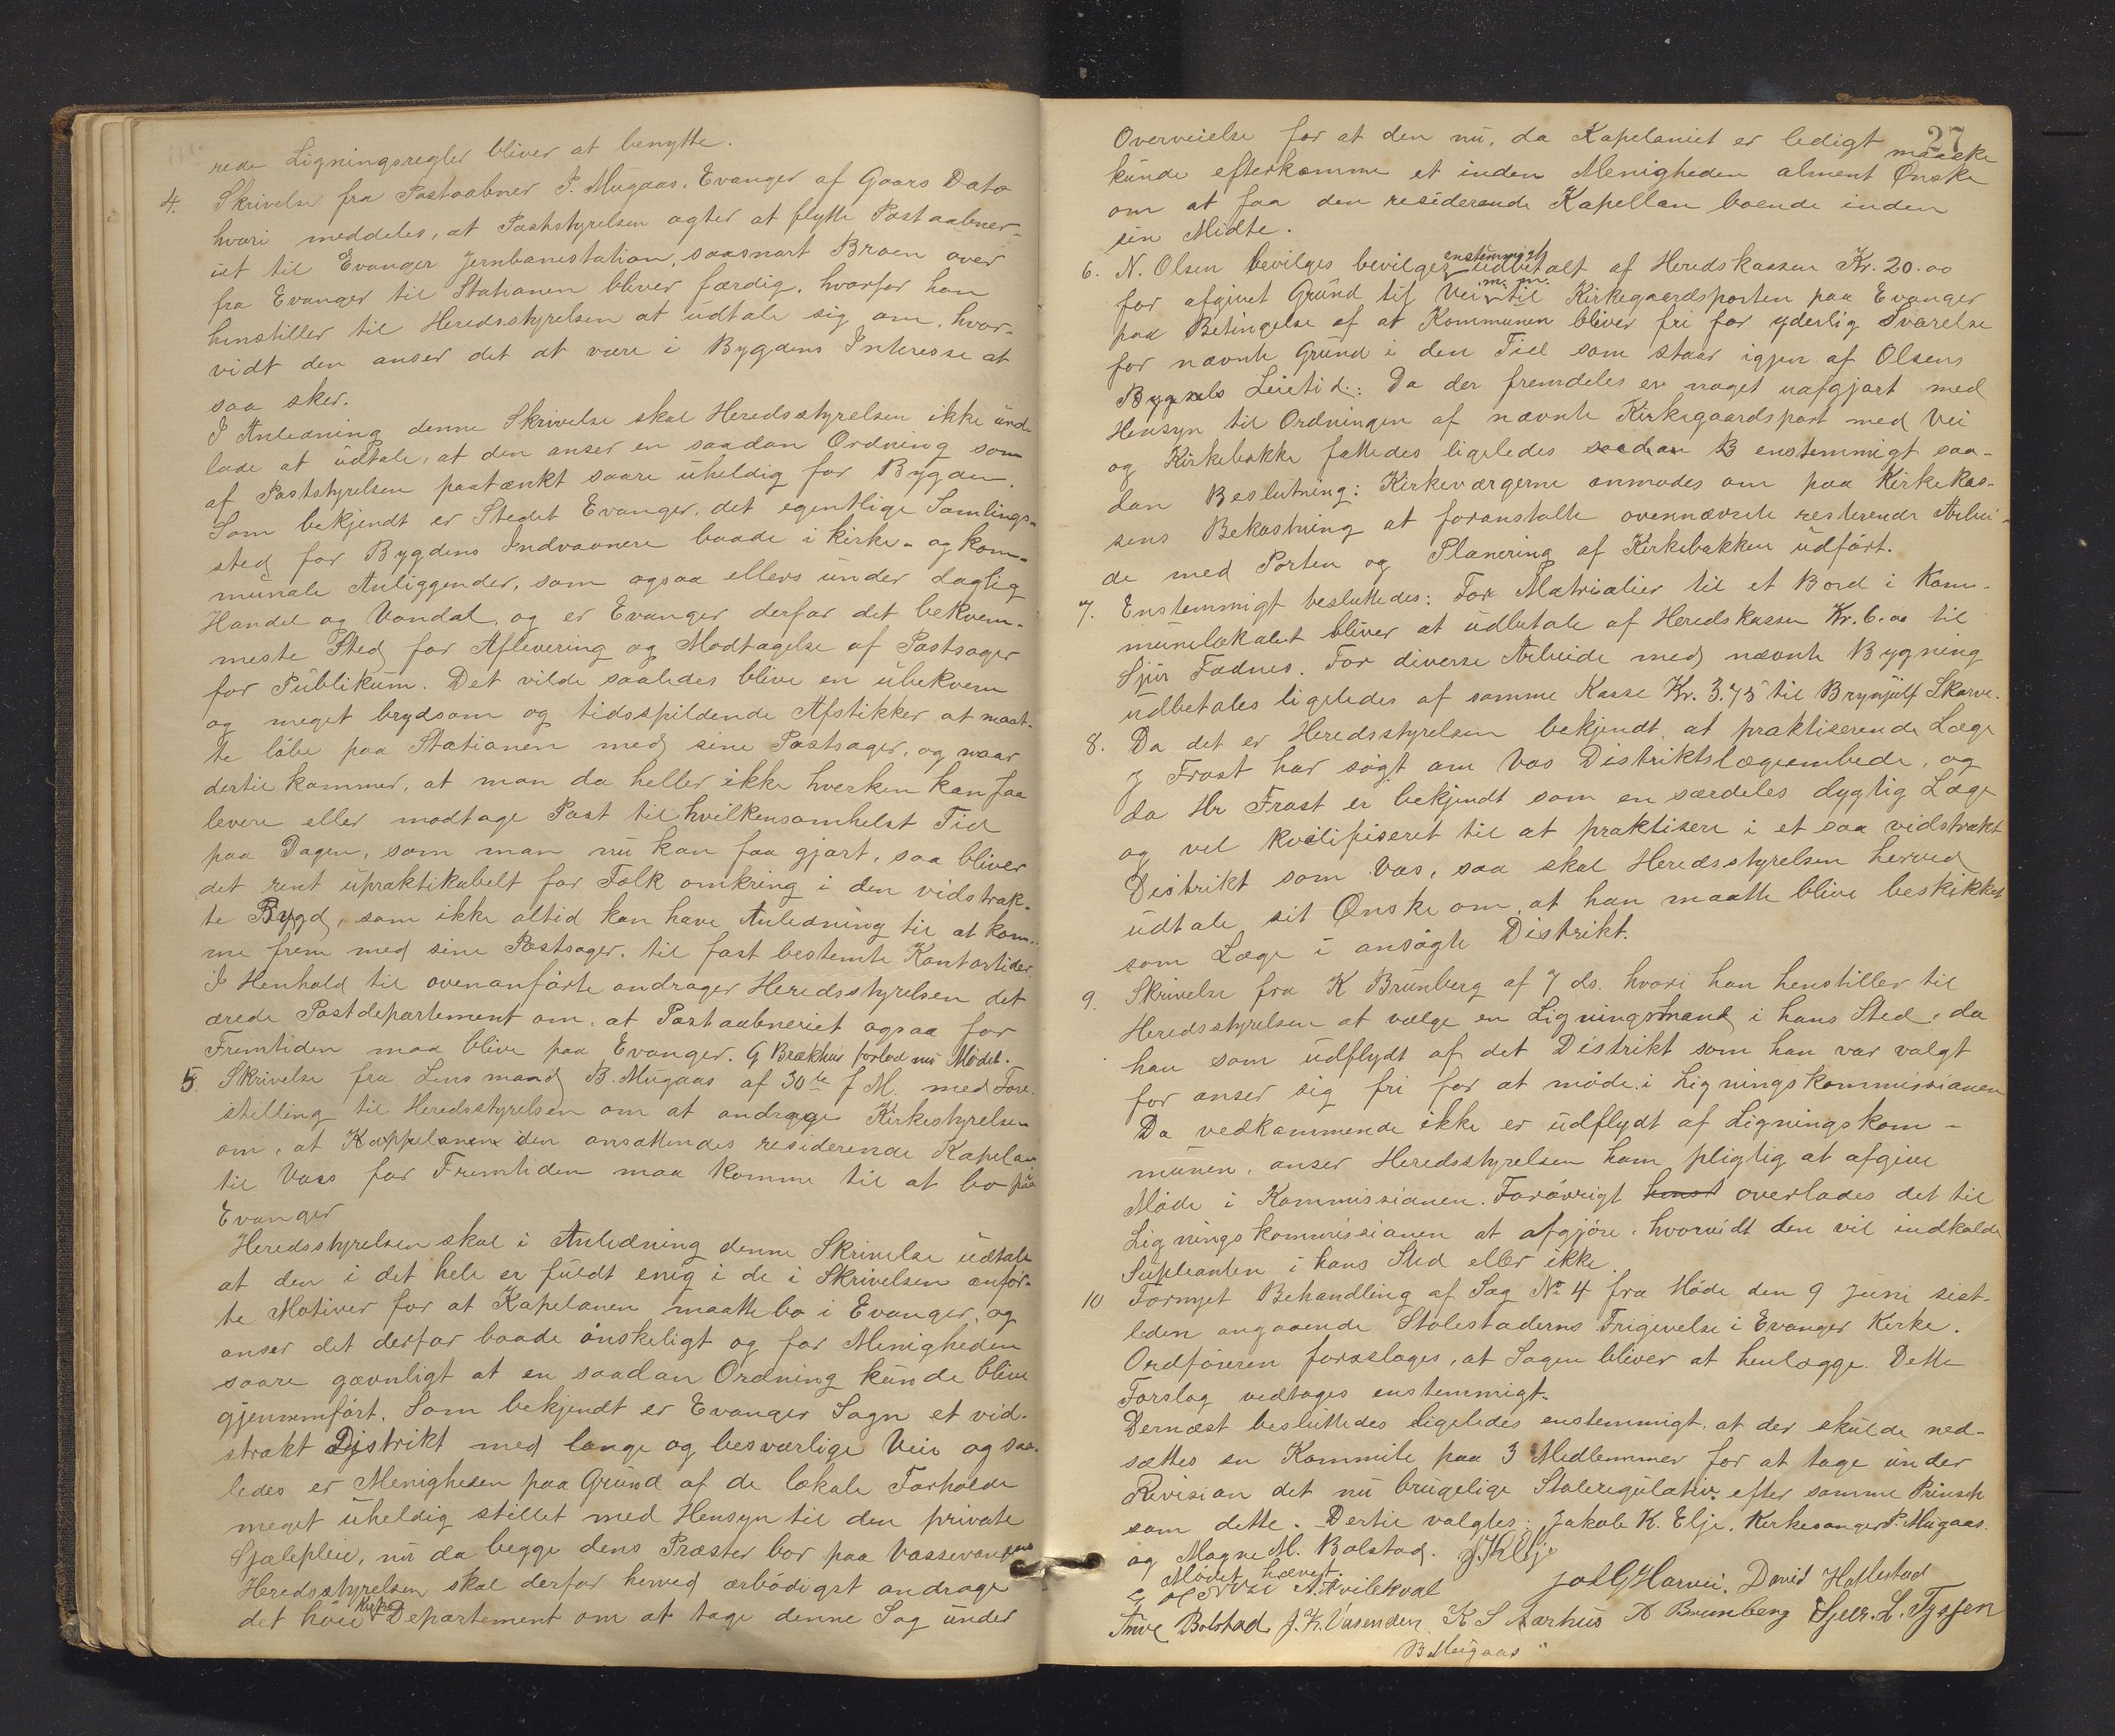 rede Ligningsregler bliver at benytte.
4. Skrivelse fra Postaabner P. Mugaas, Evanger af Gaars Dato
hvori meddeles, at Poststyrelsen agter at flytte Postaabner-
iet til Evanger Jernbanestation, saasnart Broen over
fra Evanger til Stationen bliver færdig, hvorfor han
henstiller til Heredsstyrelsen at udtale sig om, hvor-
vidt den anser det at være i Bygdens Interesse at
saa sker.
I Anledning denne Skrivelse skal Heredsstyrelsen ikke und-
lade at udtale, at den anser en saadan Ordning som
af Poststyrelsen paatænkt saare uheldig for Bygden.
Som bekjendt er Stedet Evanger, det egentlige Samlings-
sted for Bygdens Indvaanere baade i kirke- og kom-
munale Anliggender, som ogsaa ellers under daglig
Handel og Vandel, og er Evanger derfor det bekvem-
meste Sted for Aflevering og Modtagelse af Postsager
for Publikum. Det vilde saaledes blive en ubekvem
og meget brydsom og tidsspildende Afstikker at maat-
te løbe paa Stationen med sine Postsager, og naar
dertil kommer, at man da heller ikke hverken kan faa
levere eller modtage Post til hvilkensomhelst Tid
paa Dagen, som man nu kan faa gjort, saa bliver
det rent upraktikabelt for Folk omkring i den vidstrak-
te Bygd, som ikke altid kan have Anledning til at kom-
me frem med sine Postsager til fast bestemte Kontortider.
I Henhold til ovenanførte andrager Heredsstyrelsen det
ærede Postdepartement om, at Postaabneriet ogsaa for
Fremtiden maa blive paa Evanger. G Brækhus forlod nu Mødet.
5. Skrivelse fra Lensmand B. Mugaas af 30te f M. med Fore-
stilling til Heredsstyrelsen om at andrage Kirkestyrelsen
om, at Kappelanen den ansættendes residerende Kapelan
til Voss for Fremtiden maa komme til at bo paa
Evanger
Heredsstyrelsen skal i Anledning denne Skrivelse udtale
at den i det hele er fuldt enig i de i Skrivelsen anfør-
te Motiver for at Kapelanen maatte bo i Evanger, og
anser det derfor baade ønskeligt og for Menigheden
saare gavnligt at en saadan Ordning kunde blive
gjennemført. Som bekjendt er Evanger Sogn et vid-
strakt Distrikt med lange og besværlige Veie og saa-
ledes er Menigheden paa Grund af de lokale Forholde
meget uheldig stillet med Hensyn til den private
Sjælepleie, nu da begge dens Præster bor paa Vossevangen
Heredsstyrelsen skal derfor herved ærbødigst andrage
det høie Kirke Departement om at tage denne Sag under
27
Overveielse for at den nu, da Kapelaniet er ledigt maaske
kunde efterkomme et inden Menigheden alment Ønske
om at faa den residerende Kapellan boende inden
sin Midte.
6. N. Olsen bevilges bevilges enstemmigt udbetalt af Heredskassen Kr. 20.00
for afgivet Grund til Vei m. m. til Kirkegaardsporten paa Evanger
paa Betingelse af at Kommunen bliver fri for yderlig Svarelse
for nævnte Grund i den Tid som staar igjen af Olsens
Bygsels Leietid. Da der fremdeles er noget uafgjort med
Hensyn til Ordningen af nævnte Kirkegaardsport med Vei
og Kirkebakke fattedes ligeledes saadan B enstemmigt saa-
dan Beslutning: Kirkeværgerne anmodes om paa Kirkekas-
sens Bekostning at foranstalte ovennævnte resterende Arbei-
de med Porten og Planering af Kirkebakken udført.
7. Enstemmigt besluttedes: For Matrialier til et Bord i Kom-
munelokalet bliver at udbetale af Heredskassen Kr. 6.00 til
Sjur Fadnes. For diverse Arbeide med nævnte Bygning
udbetales ligeledes af samme Kasse Kr. 3.75 til Brynjulf Skorve.
8. Da det er Heredsstyrelsen bekjendt, at praktiserende Læge
J Frost har søgt om Vos Distriktslægeembede, og
da Hr Frost er bekjendt som en særdeles dygtig Læge
og vel kvalifiseret til at praktisere i et saa vidstrakt
Distrikt som Vos, saa skal Heredsstyrelsen herved
udtale sit Ønske om, at han maatte blive beskikket
som Læge i ansøgte Distrikt.
9. Skrivelse fra K Brunberg af 7 ds. hvori han henstiller til
Heredsstyrelsen at vælge en Ligningsmand i hans Sted, da
han som udflydt af det Distrikt som han var valgt
for anser sig fri for at møde i Ligningskommissionen
Da vedkommende ikke er udflydt af Ligningskom-
munen, anser Heredsstyrelsen ham pligtig at afgive
Møde i Kommissionen. Forøvrigt overlades det til
Ligningskommissionen at afgjøre, hvorvidt den vil indkalde
Supleanten i hans Sted eller ikke.
10 Fornyet Behandling af Sag No 4 fra Møde den 9 Juni sist-
leden angaaende Stolestadernes Frigivelse i Evanger Kirke.
Ordføreren foreslages, at Sagen bliver at henlægge. Dette
Forslag vedtages enstemmigt.
Dernæst besluttedes ligeledes enstemmigt, at der skulde ned-
sættes en Kommite paa 3 Medlemmer for at tage under
Revision det nu brugelige Stoleregulativ efter samme Prinsip
som dette. Dertil valgtes: Jakob K. Elje, Kirkesanger P. Mugaas
og Magne M. Bolstad. J K Elje
Mødet hævet.
A Kvilekval David Hasllestad
Bolstad J. K. Vasenden K S Aarhus K Brunberg Sjur. L. Tyssen
B Mugaas